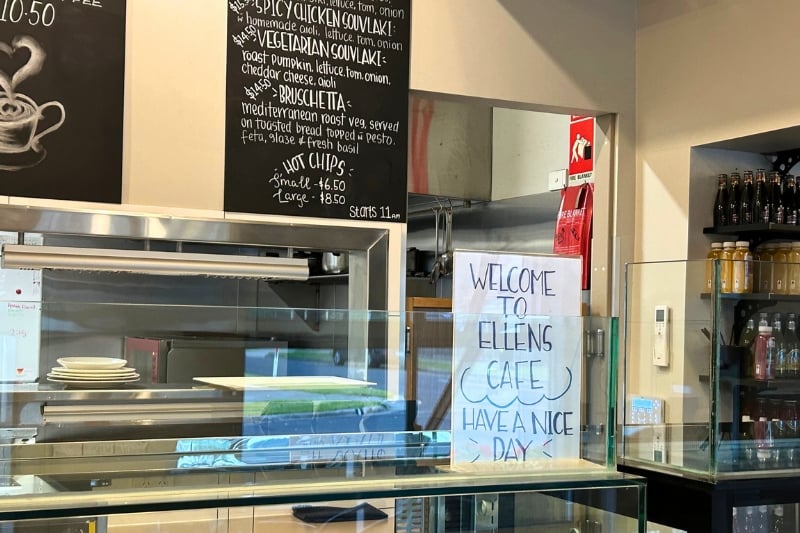 10.50
lettuce, tom, onion
SPICY CHICKEN SOUVLAKI:
homemade aioli, lettuce, tom, onion
$14.50 VEGETARIAN SOUVLAKI:
roast pumpkin, lettuce, tom, onion,
cheddar cheese, aioli
$14.50 BRUSCHETTA
mediterranean roast veg, served
on toasted bread topped w pesto,
feta, glaze & fresh basil
HOT CHIPS
Small - $6.50
Large - $8.50
Starts 11AM
FIRE BLANKET
WELCOME
TO
ELLENS
CAFE
HAVE A NICE
DAY